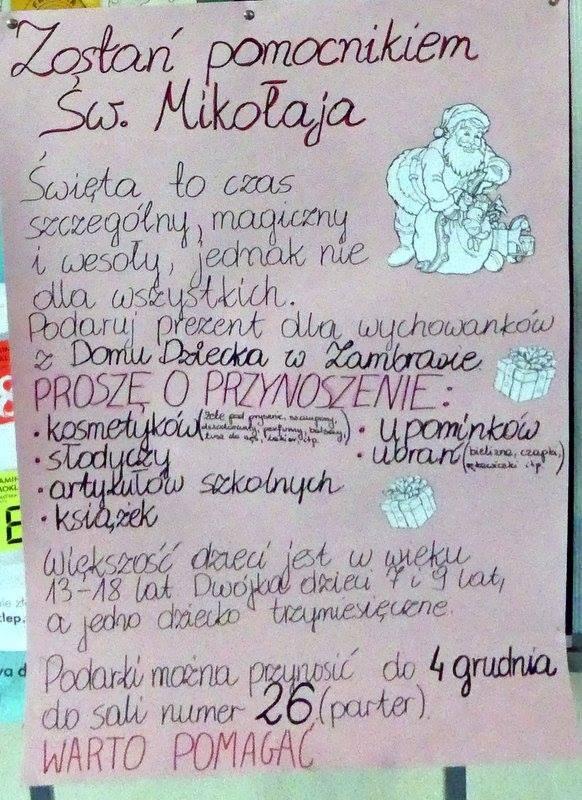 Zostań pomocnikiem
Św. Mikołaja
Święta to czas
szczególny, magiczny
i wesoły, jednak nie
dla wszystkich.
Podaruj prezent dla wychowanków
z Domu Dziecka w Zambrowie.
PROSZĘ O PRZYNOSZENIE:
• kosmetyków (żele pod prysznic, szampony, dezodoranty, perfumy, balsamy, itp.)
• upominków
• słodyczy
• ubrań (bielizna, czapki, rękawiczki itp.)
• artykułów szkolnych
• książek
Większość dzieci jest w wieku
13-18 lat Dwójka dzieci 7 i 9 lat,
a jedno dziecko trzymiesięczne.
Podarki można przynosić do 4 grudnia
do sali numer 26 (parter).
WARTO POMAGAĆ